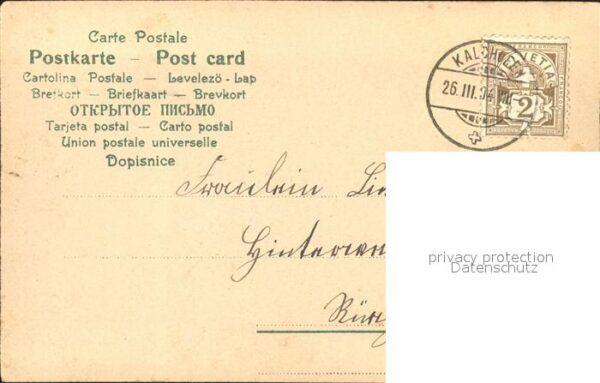 Carte Postale
Postkarte – Post card
Cartolina Postale – Levelező-Lap
Brefkort – Briefkaart – Brevkort
ОТКРЫТОЕ ПИСЬМО
Tarjeta postal – Carto postal
Union postale universelle
Dopisnice
26.III.04
2
Fräulein
privacy protection
Datenschutz